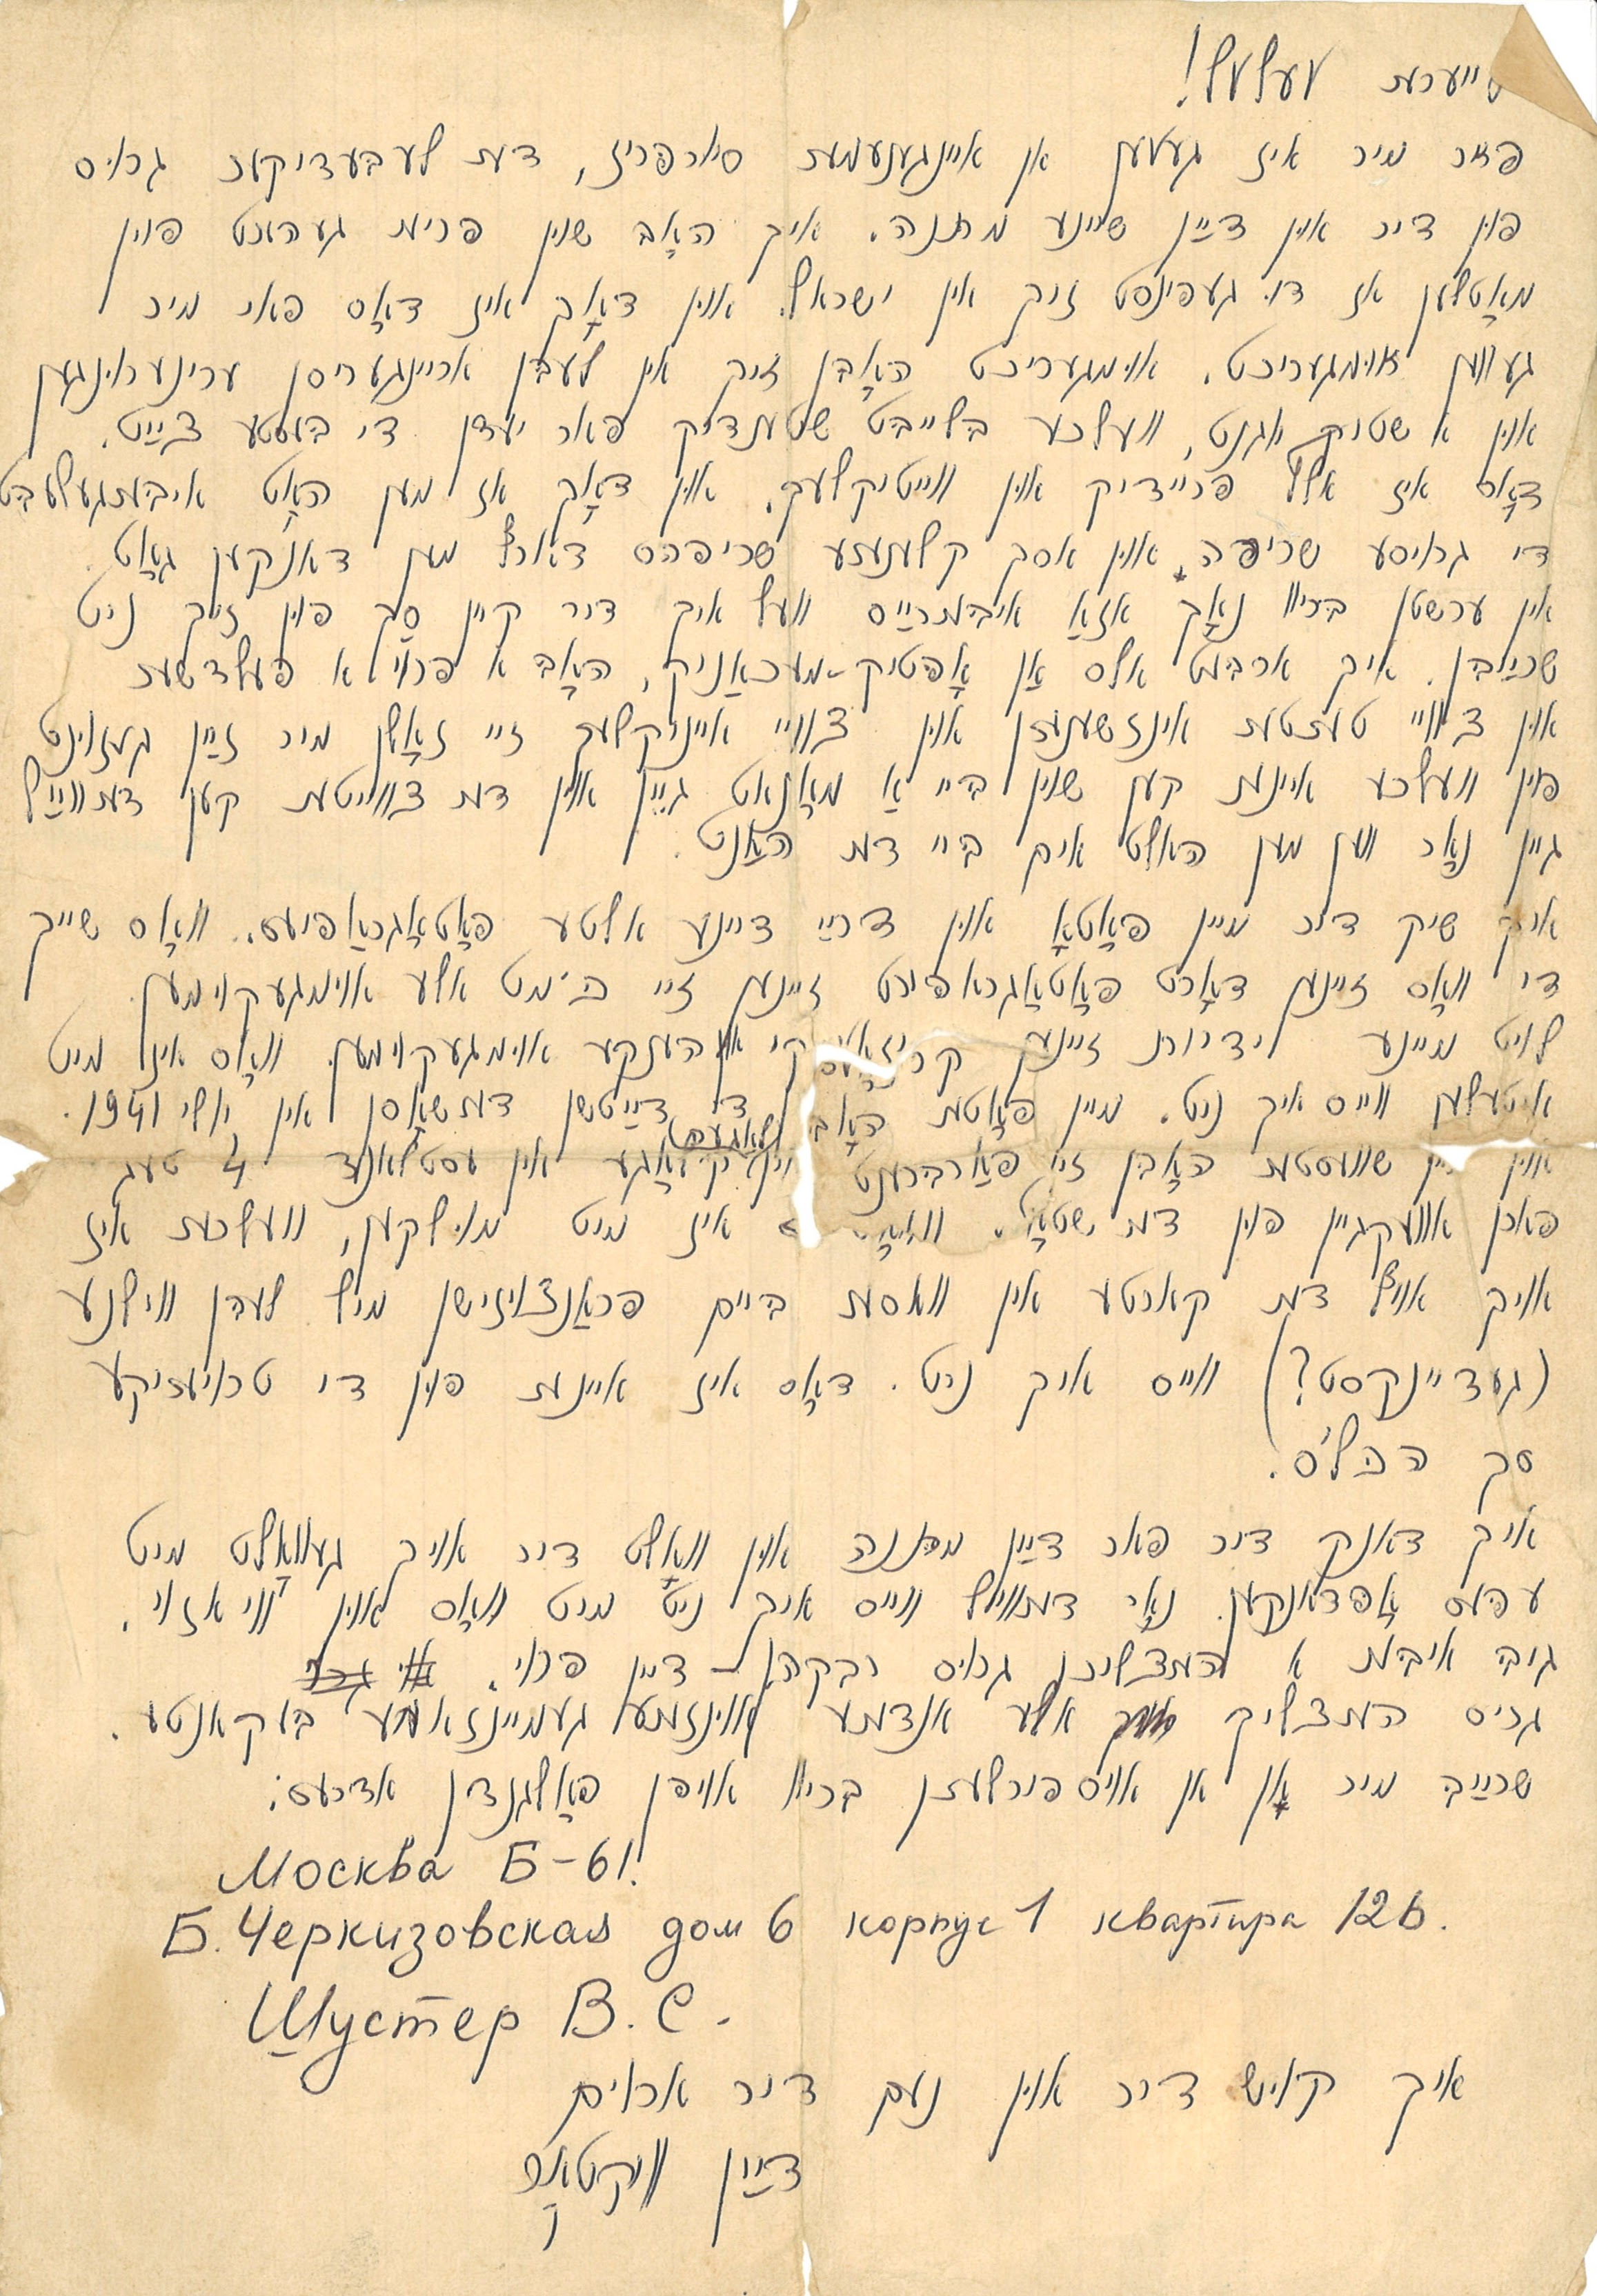 טייערער וועלוול!
פאר מיר איז געווען אן איינגענעמער סיורפריז, דער לעבעדיקער גרויס
פון דיר און דײַן שיינע מתנה. איך האָב שוין פריער געהערט פון
מאָטלען אז דו געפינסט זיך אין ישראל. און דאָך איז דאָס פאר מיר
געווען אומגעריכט. אומגעריכט האָבן זיך אין לעבן אריינגעריסן ערינערונגען
און א שטיק יוגנט, וועלכע בלייבט שטענדיק פאר יעדן די בעסטע צײַט.
דאָס איז אלץ פריידיק און ווייטיקלעך. און דאָך אז מען האָט איבערגעלעבט
די גרויסע שריפה און אסך קלענערע שריפהס דארף מען דאנקען גאָט.
אין ערשטן בריוו נאָך אזאַ איבעררײַס וועל איך דיר קיין סַך פון זיך ניט
שרײַבן. איך ארבעט אלס אַן אָפטיק-מעכאַניק, האָב א פרוי א פעלדשער
און צוויי טעכטער אינזשענערן און צוויי אייניקלעך זיי זאָלן מיר זײַן געזונט
פון וועלכע איינער קען שוין ביי אַ מאָנאט גיין און דער צווייטער קען דערווײַל
גיין נאָר ווען מען האלט אים ביי דער האַנט.
איך שיק דיר מיין פאָטאָ און דרײַ דיינע אלטע פאָטאָגראַפיעס. וואָס שייך
די וואָס זיינען דאָרט פאָטאָגראפירט זיינען זיי כּמעט אלע אומגעקומען.
לויט מיינע ידיעות זיינען און הענקע אומגעקומען. וואָס איז מיט
איטעלען ווייס איך ניט. מיין פאָטער האָב די דײַטשן דערשאָסן אין יולי 1941.
און מיין שוועסטער האָבן זיי פאַרברענט אין לאַגער אין עסטלאנד 4 טעג
פארן אוועקגיין פון דער שטאָט. וואָס איז מיט מוילקען, וועלכער איז
אויך אויף דער קארטע אין וואסער ביים פראַנצויזישן מיל לעבן ווילנע
(געדיינקסט?) ווייס איך ניט. דאָס איז איינער פון די טרויעריקע
סך הכל'ס.
איך דאנק דיר פאר דײַן מתנה און וואָלט דיר אויך געוואָלט מיט
עפעס אָפדאנקען. נאָר דערווײל ווייס איך ניט מיט וואָס און ווי אזוי.
גיב איבער א הערצליכן גרויס רבקהן - דיין פרוי.
גריס הערצליך אלע אנדערע אונזערע געמיינזאמע באקאנטע.
שרײַב מיר אָן אן אויספירלעכן בריוו אויפן פאָלגנדן אדרעס:
Москва Б-61.
Б. Черкизовская дом 6 корпус 1 квартира 126.
Шустер В. С.
איך קוש דיר און נעם דיר ארום
דײַן וויקטאָר